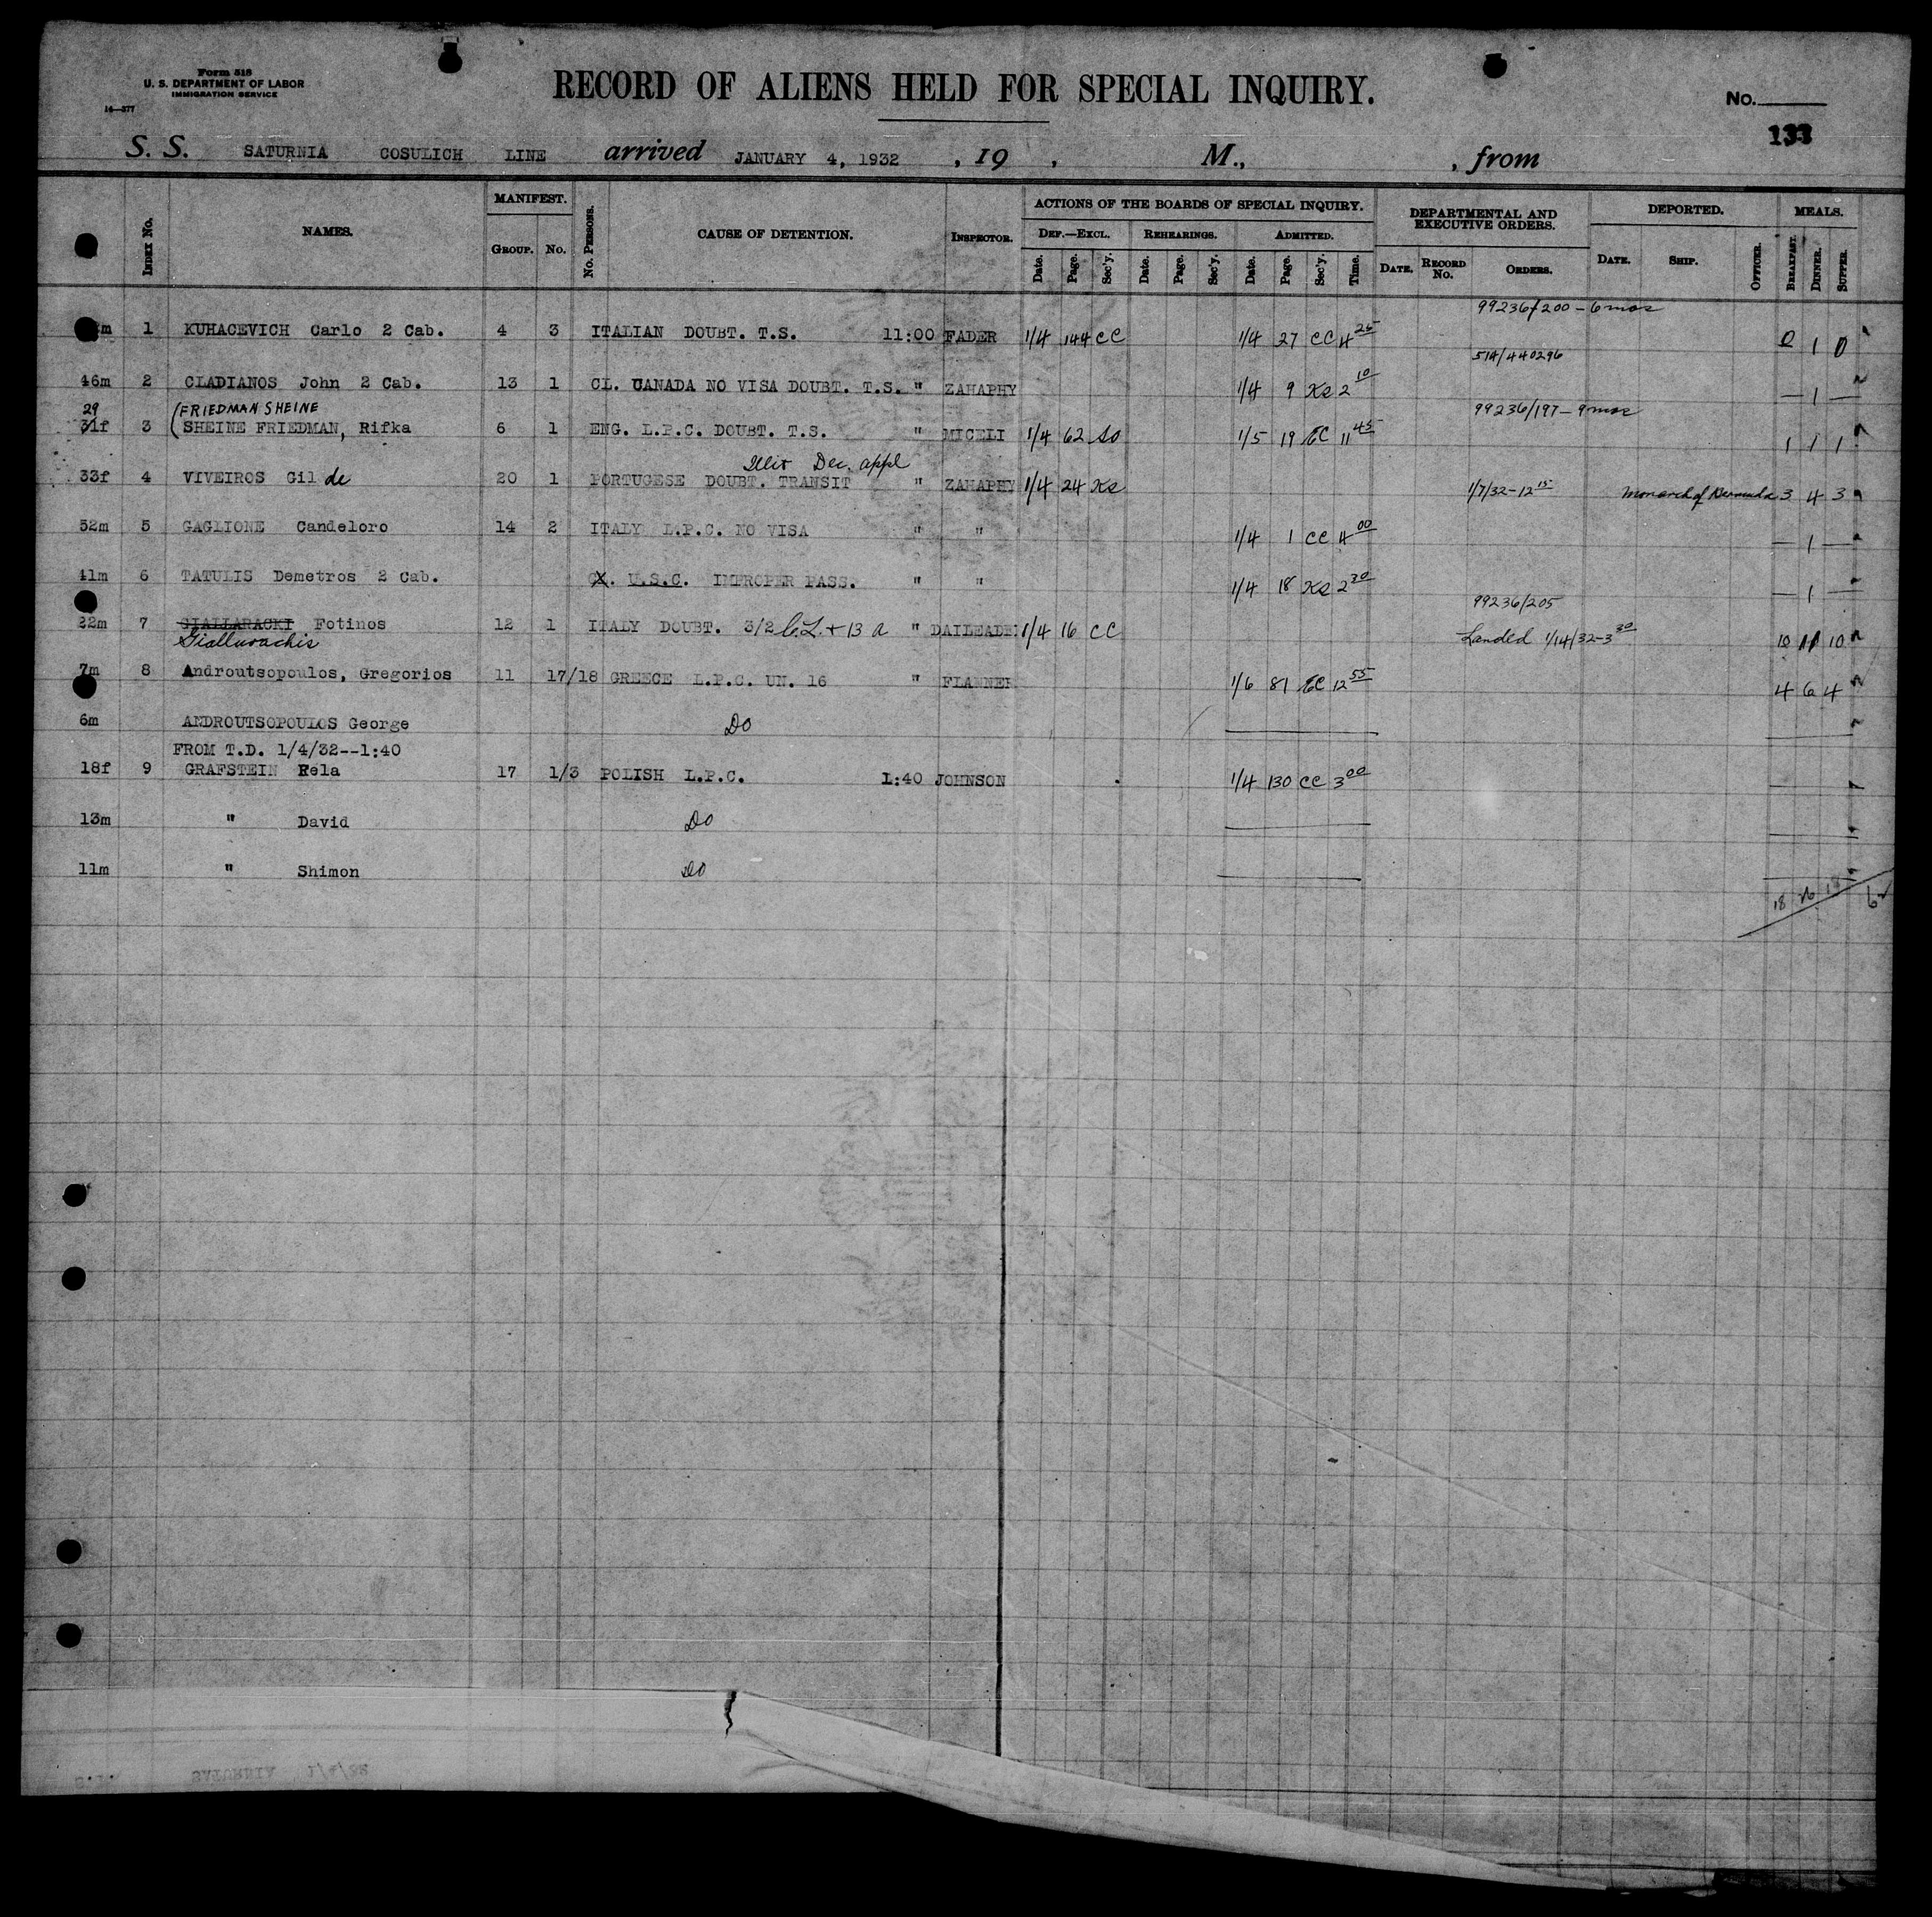 Form 518
U. S. DEPARTMENT OF LABOR
IMMIGRATION SERVICE
14—377
RECORD OF ALIENS HELD FOR SPECIAL INQUIRY.
No.
133
S. S. SATURNIA COSULICH LINE arrived JANUARY 4, 1932 , 19 , M., , from
INDEX No. NAMES. MANIFEST. GROUP. No. No. PERSONS. CAUSE OF DETENTION. INSPECTOR. ACTIONS OF THE BOARDS OF SPECIAL INQUIRY. DEF.—EXCL. Date. Page. Sec'y. REHEARINGS. Date. Page. Sec'y. ADMITTED. Date. Page. Sec'y. Time. DEPARTMENTAL AND EXECUTIVE ORDERS. DATE. RECORD No. ORDERS. DEPORTED. DATE. SHIP. OFFICER. MEALS. BREAKFAST. DINNER. SUPPER.
99236/200 - 6 mos
m 1 KUHACEVICH Carlo 2 Cab. 4 3 ITALIAN DOUBT. T.S. 11:00 FADER 1/4 144 CC 1/4 27 CC 4 25 0 1 0
514/440296
46m 2 CLADIANOS John 2 Cab. 13 1 CL. CANADA NO VISA DOUBT. T.S. " ZAHAPHY 1/4 9 KS 2 10 — 1 —
29 (FRIEDMAN SHEINE 99236/197 - 9 mos
31f 3 SHEINE FRIEDMAN, Rifka 6 1 ENG. L.P.C. DOUBT. T.S. " MICELI 1/4 62 So 1/5 19 EC 11 45 1 1 1
Dec. appl
33f 4 VIVEIROS Gil de 20 1 PORTUGESE DOUBT. TRANSIT " ZAHAPHY 1/4 24 KS 1/7/32-12 15 Monarch of Bermuda 3 4 3
32m 5 GAGLIONE Candeloro 14 2 ITALY L.P.C. NO VISA " " 1/4 1 CC 4 00 — 1 —
41m 6 TATULIS Demetros 2 Cab. U.S.C. IMPROPER PASS. " " 1/4 18 KS 2 30 — 1 —
99236/205
22m 7 GIALLARACKI Fotinos 12 1 ITALY DOUBT. 3/2 C.L. + 13 a " DAILEADE 1/4 16 CC Landed 1/14/32-3 30 10 11 10
Giallurachis
7m 8 Androutsopoulos, Gregorios 11 17/18 GREECE L.P.C. UN. 16 " FLANNE 1/6 81 EC 12 55 4 6 4
6m ANDROUTSOPOULOS George DO
FROM T.D. 1/4/32--1:40
18f 9 GRAFSTEIN Rela 17 1/3 POLISH L.P.C. 1:40 JOHNSON 1/4 130 CC 3 00
13m " David DO
11m " Shimon DO
18 26 18 62
SATURNIA 1/4/32